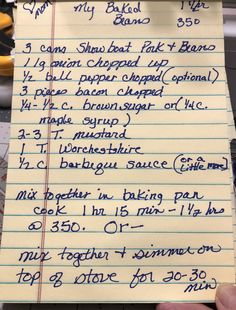 My Baked
Beans
1 1/2 hr
350
3 cans Showboat Pork + Beans
1 lg onion chopped up
1/2 bell pepper chopped (optional)
3 pieces bacon chopped
1/4 - 1/2 c. brown sugar or (1/4 c.
maple syrup)
2-3 T. mustard
1 T. Worchestshire
1/2 c. barbeque sauce (or a
little more)
mix together in baking pan
cook 1 hr 15 min - 1 1/2 hrs
@ 350. Or—
mix together + simmer on
top of stove for 20-30
min